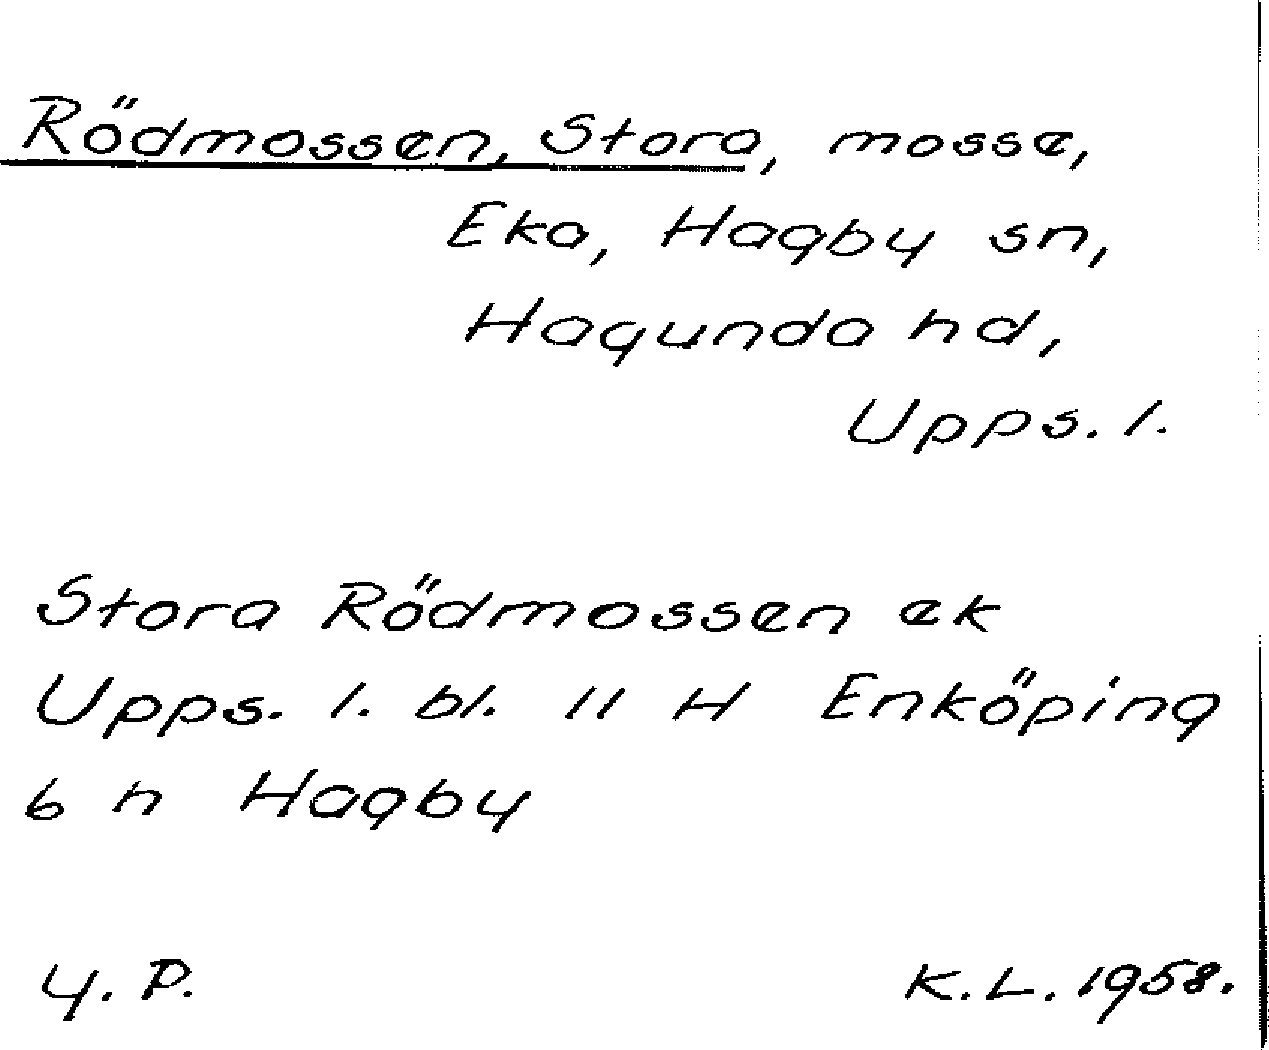 Rödmossen, Stora, mosse,
Eka, Hagby sn,
Hagunda hd,
Upps. l.
Stora Rödmossen ek
Upps. l. bl. 11 H Enköping
6 h Hagby
Y. P.
K. L. 1958.